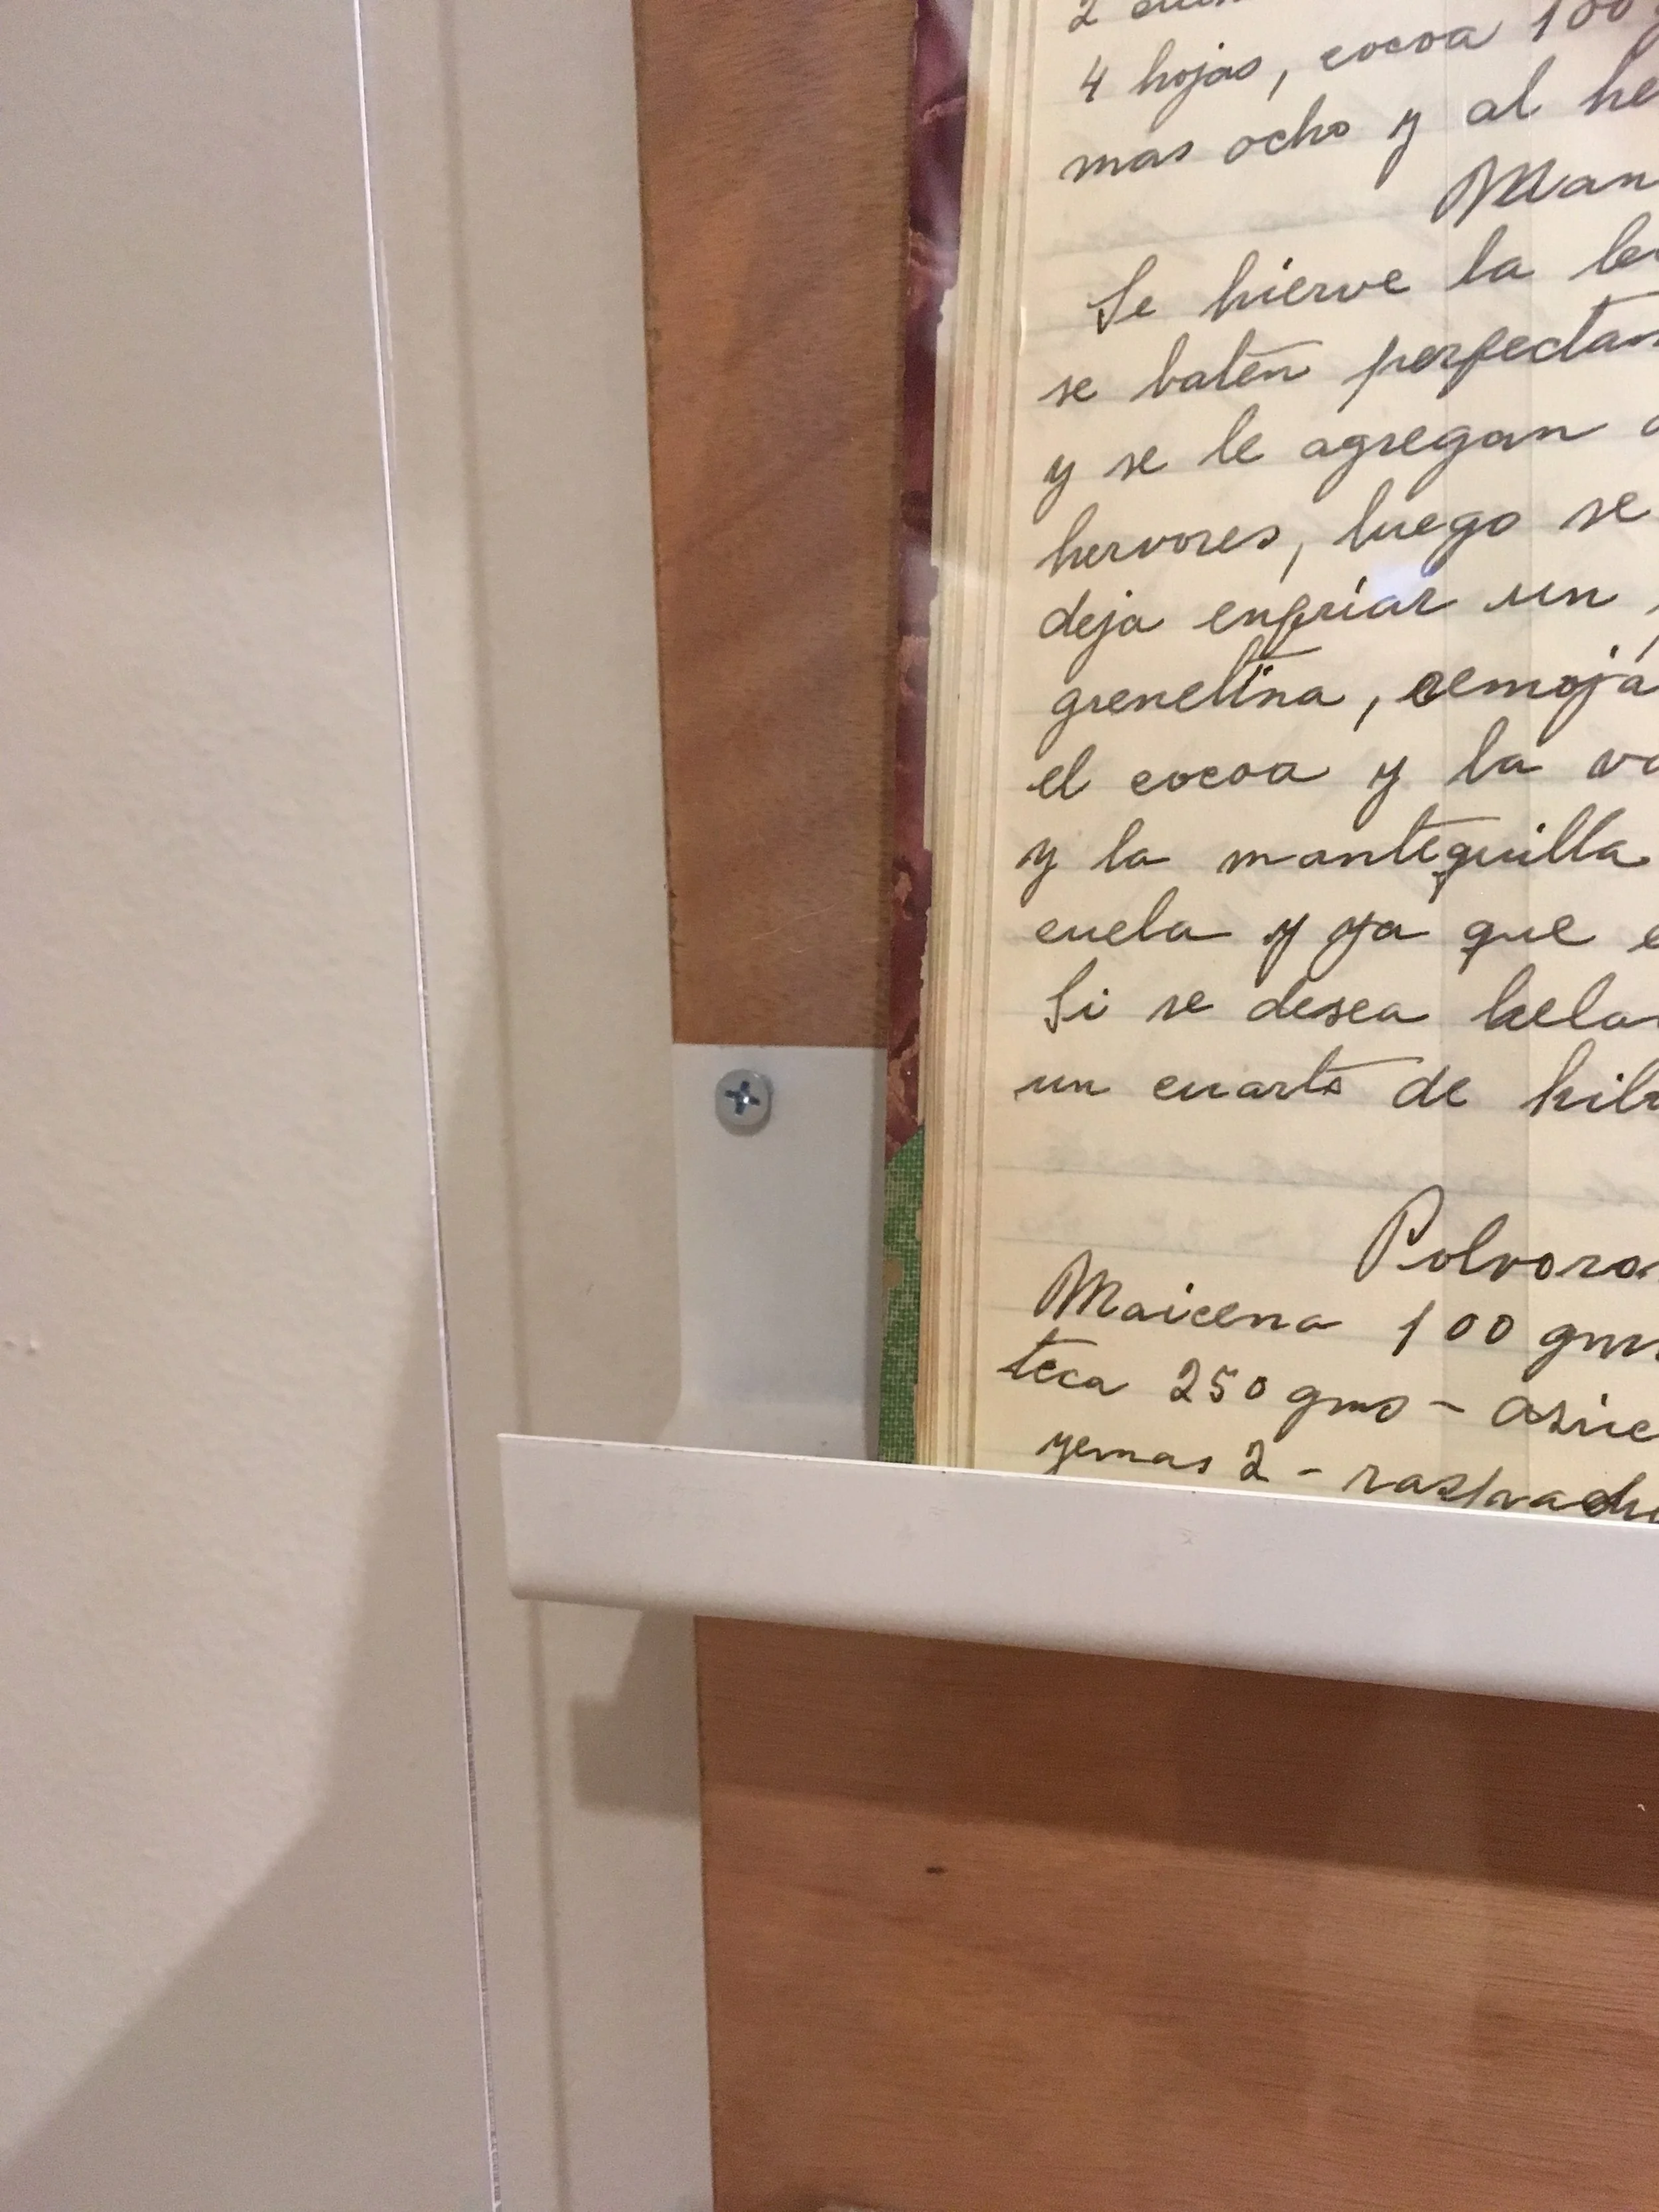 2
4 hojas, cocoa 100
mas ocho y al he
Man
Se hierve la le
se baten perfectam
y se le agregan
hervores, luego se
deja enfriar un
grenetina, remojá
el cocoa y la va
y la mantequilla
cuela y ya que e
Si se desea hela
un cuarto de kil
Polvoro
Maicena 100 gms
teca 250 gms - azúc
yemas 2 - raspadu